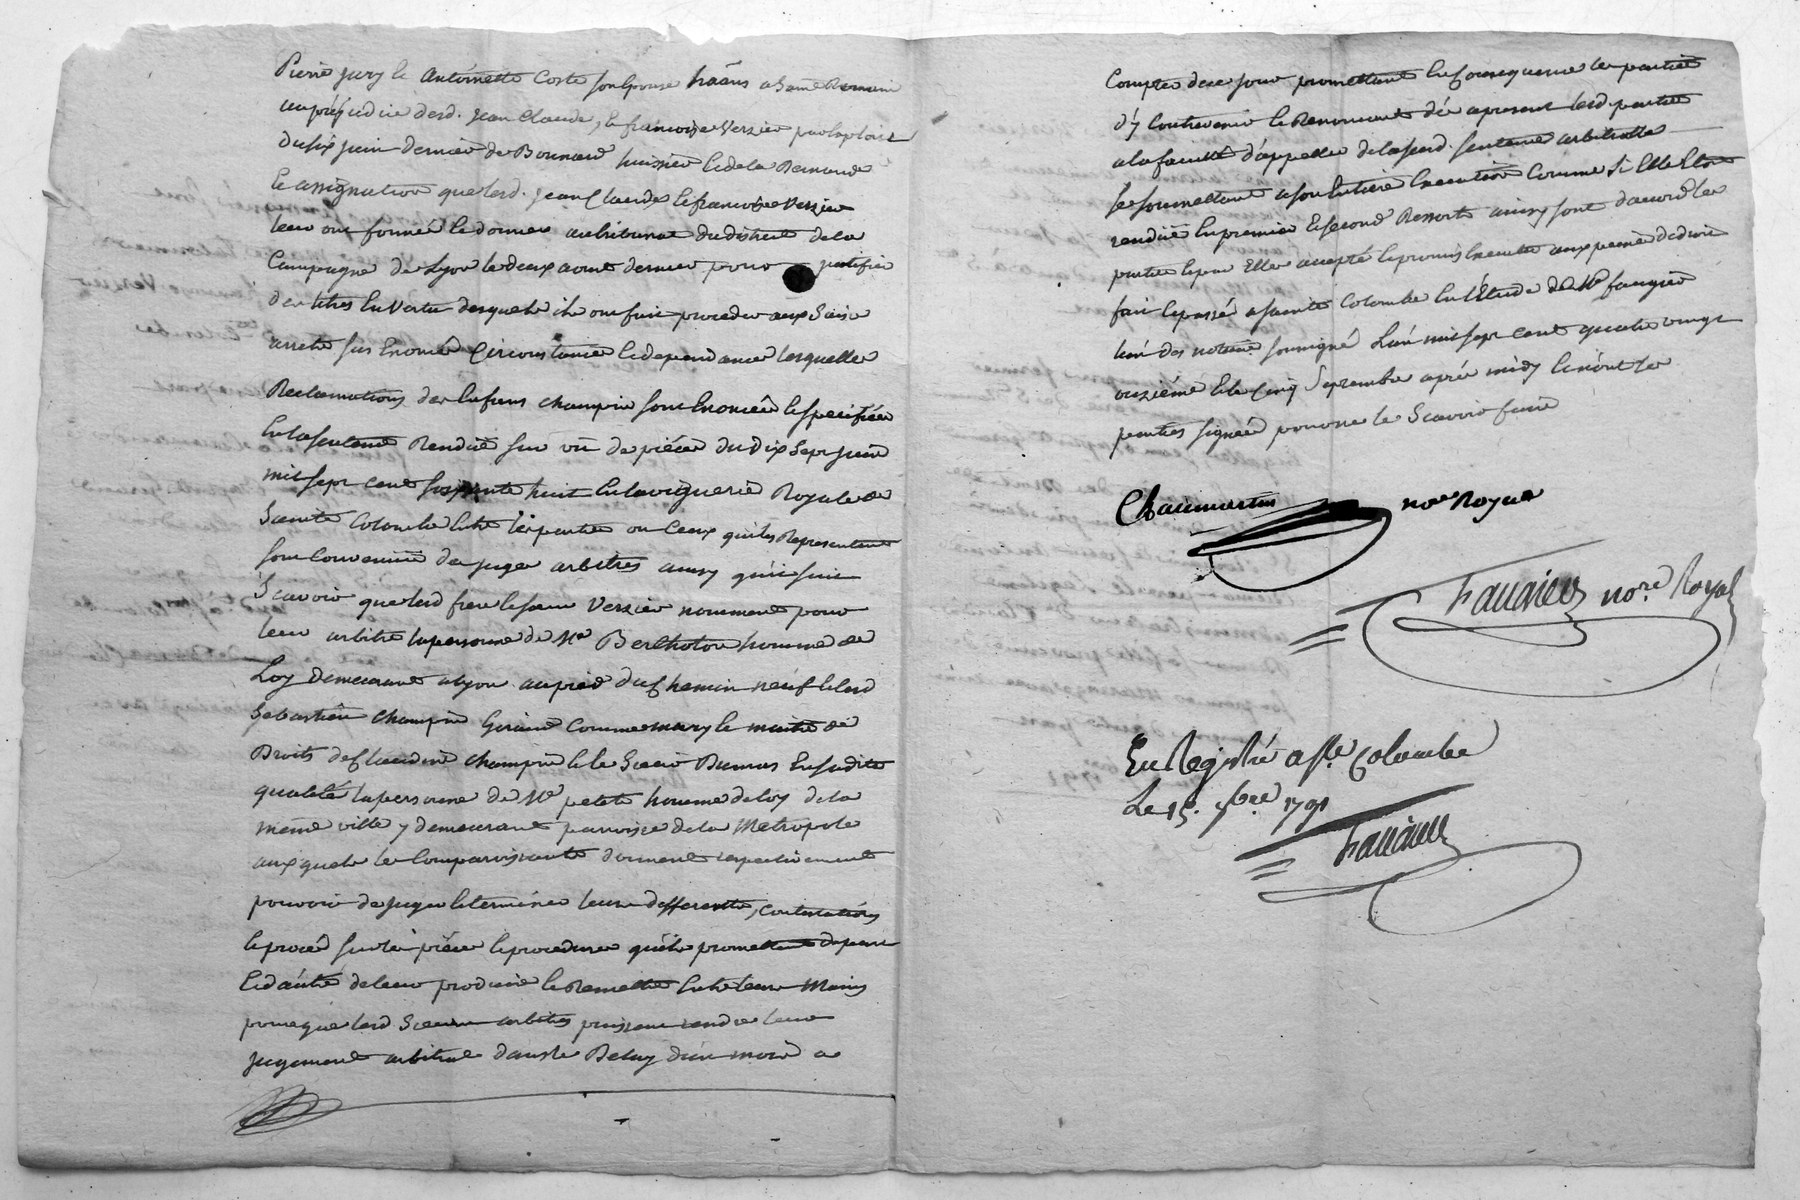 Pierre Jury & Antoinette Coste son Epouse
au préjudice desd. Jean Claude, & françoise Verzier par exploit
du six juin dernier de Bonnard huissier & de la Demande
& assignation que lesd. Jean Claude & françoise Verzier
leur ont formée & donnée au tribunal du district de la
Campagne de Lyon le deux aout dernier pour justifier
des titres En Vertu desquels ils ont fait proceder aux Saisie
arrets sus Enoncés Circonstances & dependances lesquelles
Reclamations des Enfans Champin sont Enoncées & specifiées
En la sentence Rendue sur vû de pièces du Dix Sept juin
mil sept cent soixante huit En la viguerie Royale de
Sainte Colombe Entre les parties ou Ceux qui les Representent
sont Convenues de juges arbitres ainsy qu'il suit
Scavoir que lesd frere & soeur Verzier nomment pour
leur arbitre la personne de Me Berthoton homme de
Loy Demeurant a lyon au pied du Chemin neuf & led
Sebastien Champin Giraud Comme mary & maitre des
Droits de Claudine Champin & le Sieur Dumas En sadite
qualité la personne de Me petit homme de loy de la
même ville y demeurant parroisse de la Metropole
aux quels les Comparoissants donnent respectivement
pouvoir de juger & terminer leurs differents, contestations
& procès sur les pièces & procedures qu'ils promettent de part
& d'autre de leur produire & Remettre Entre leurs Mains
pour que lesd Sieurs arbitres puissent rendre leur
jugement arbitral dans le Delay d'un mois a
Compter de ce jour promettant En Consequence les parties
d'y Contrevenir & Renonceant dés apresent lesd. parties
a la faculté d'appeller de lad. sentence arbitralle
se soumettant a son Entiere Execution Comme si Elle Etoit
rendue En premier & second Ressorts ainsy sont d'accord les
parties & par Elles accepté & promis Executer aux peines de droit
fait & passé a sainte Colombe En l'Etude de Me faugier
lun des notaires soussigné L'an mil sept cent quatre vingt
onzième & le Cinq Septembre après midy & n'ont les
parties signées pour ne le Scavoir faire
Chaumartin nore Royal
Faugier nore. Royal
EnRegistré a Ste Colombe
Le 15. 7bre 1791
Faugier